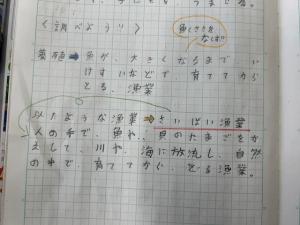 <調べよう!!>
魚くささを
なくす!!
養殖➡魚が、大きくなるまで、い
けすいなどで、育ててから
とる、漁業
以たような漁業➡さいばい漁業
人の手で、魚や、貝のたまごをか
えして、川や、海に放流し、自然
の中で、育ててから、とる漁業。